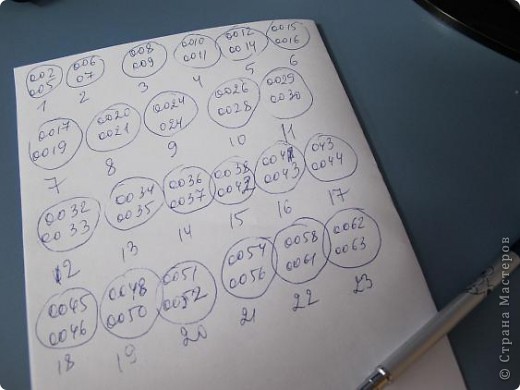 002 006 008 0010 0012 0015
005 07 009 0011 0014 0016
1 2 3 4 5 6
0017 0020 0024 0026 0029
0019 0021 024 0028 0030
7 8 9 10 11
0032 0034 0036 0038 043
0033 0035 0037 0043 0044
12 13 14 15 16 17
0045 0048 0051 0054 0058 0062
0046 0050 0052 0056 0061 0063
18 19 20 21 22 23
© Страна Мастеров